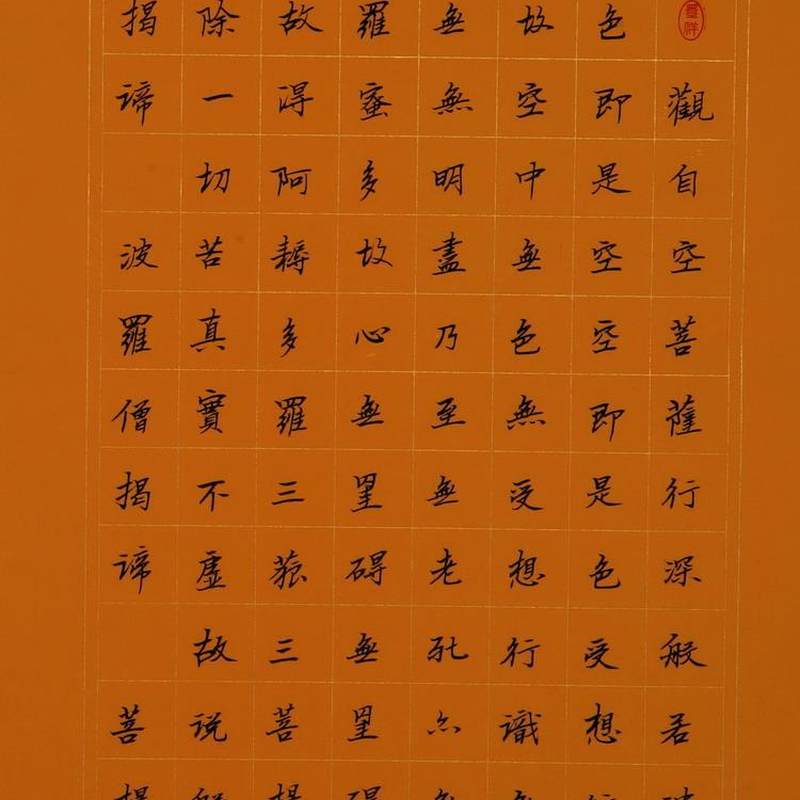 觀自空菩薩行深般若波
色即是空空即是色受想行
故空中無色無受想行識無
無無明盡乃至無老死亦無
羅蜜多故心無罣碍無罣碍
故得阿耨多羅三藐三菩提
除一切苦真實不虛故說般
揭諦 波羅僧揭諦 菩提